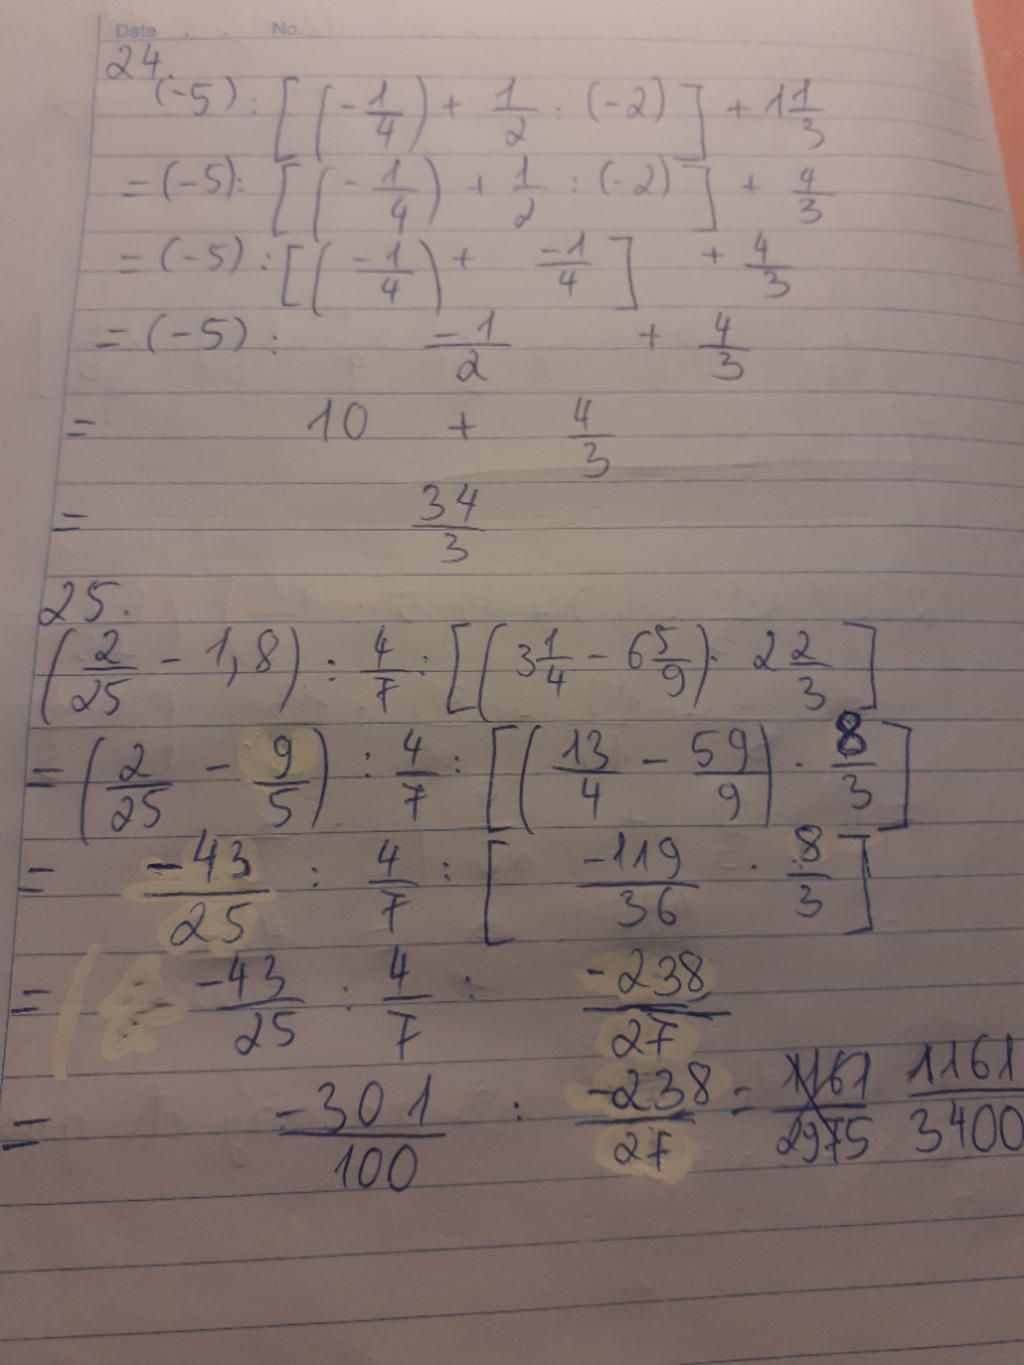 Date No.
24.
(-5) : [(-1/4) + 1/2 : (-2)] + 1 1/3
= (-5) : [(-1/4) + 1/2 : (-2)] + 4/3
= (-5) : [(-1/4) + -1/4] + 4/3
= (-5) : -1/2 + 4/3
= 10 + 4/3
= 34/3
25.
(2/25 - 1,8) : 4/7 : [(3 1/4 - 6 5/9) · 2 2/3]
= (2/25 - 9/5) : 4/7 : [(13/4 - 59/9) · 8/3]
= -43/25 : 4/7 : [-119/36 · 8/3]
= -43/25 : 4/7 : -238/27
= -301/100 : -238/27 = 1161/2975 1161/3400